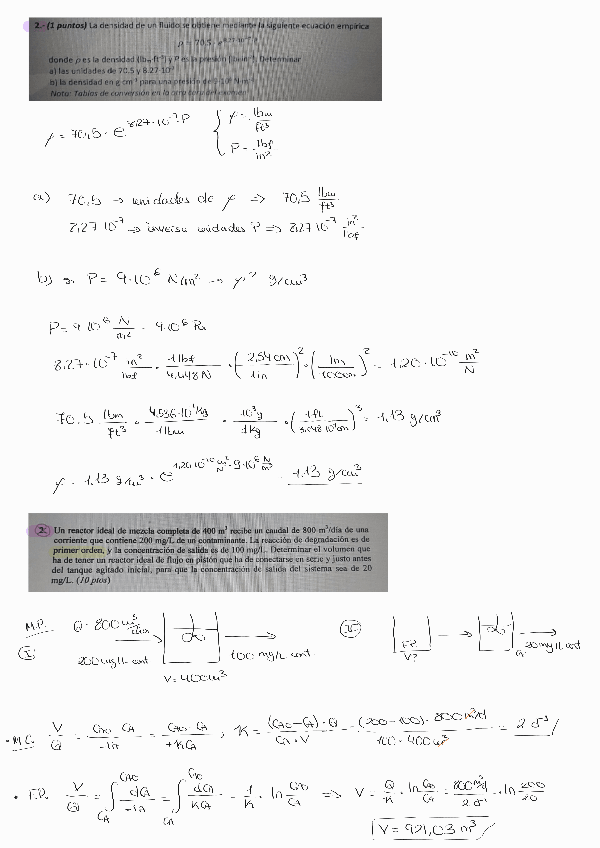 2.- (1 puntos) La densidad de un fluido se obtiene mediante la siguiente ecuación empírica
ρ = 70.5 · e^8.27·10^-7 P
donde ρ es la densidad (lbm·ft³) y P es la presión (lbf·in²). Determinar
a) las unidades de 70.5 y 8.27·10^-7
b) la densidad en g cm^-3 para una presión de 9·10^6 N m^-2
Nota: Tablas de conversión en la
ρ = 70,5 · e^8,27·10^-7 P { ρ = lbm/ft³
P = lbf/in²
a) 70,5 → unidades de ρ ⇒ 70,5 lbm/ft³
8,27·10^-7 → inversa unidades P ⇒ 8,27·10^-7 in²/lbf
b) si P = 9·10^6 N/m² → ρ? g/cm³
P = 9·10^6 N/m² = 9·10^6 Pa
8,27·10^-7 in²/lbf · 1 lbf/4,448 N · (2,54 cm/1 in)² · (1m/100cm)² = 1,20·10^-10 m²/N
70,5 lbm/ft³ · 4,536·10^-1 kg/1 lbm · 10³g/1kg · (1 ft/3,048·10 cm)³ = 1,13 g/cm³
ρ = 1,13 g/cm³ · e^1,20·10^-10 m²/N · 9·10^6 N/m² = 1,13 g/cm³
2. Un reactor ideal de mezcla completa de 400 m³ recibe un caudal de 800 m³/día de una
corriente que contiene 200 mg/L de un contaminante. La reacción de degradación es de
primer orden, y la concentración de salida es de 100 mg/L. Determinar el volumen que
ha de tener un reactor ideal de flujo en pistón que ha de conectarse en serie y justo antes
del tanque agitado inicial, para que la concentración de salida del sistema sea de 20
mg/L. (10 ptos)
M.P. Q = 800 m³/día
I
200 mg/L cont
100 mg/L cont.
V = 400 m³
II
F.P.
V?
20 mg/L cont
• M.C. V/Q = CA0 - CA/-rA = CA0 - CA/+KCA ; K = (CA0 - CA)·Q/CA·V = (200-100)·800 m³/d/100·400 m³ = 2 d^-1
• F.P. V/Q = ∫ CA0 CA dCA/-rA = ∫ CA0 CA dCA/KCA = 1/K · ln CA0/CA ⇒ V = Q/K · ln CA0/CA = 800 m³/d/2 d^-1 · ln 200/20
V = 921,03 m³